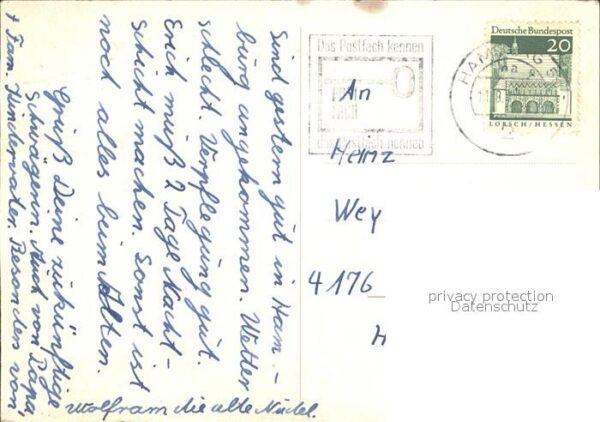 Sind gestern gut in Ham-
burg angekommen. Wetter
schlecht. Verpflegung gut.
Erich muß 2 Tage Nacht-
schicht machen. Sonst ist
noch alles beim Alten.
Gruß Deine zukünftige
Schwägerin. Auch von Papa
+ Fam. Besonders von,
Wolfram die alte Nudel.
Das Postfach kennen
das Postfach nennen
Deutsche Bundespost
20
LORSCH/HESSEN
HAMBURG
An
Heinz
Wey
4176
privacy protection
Datenschutz